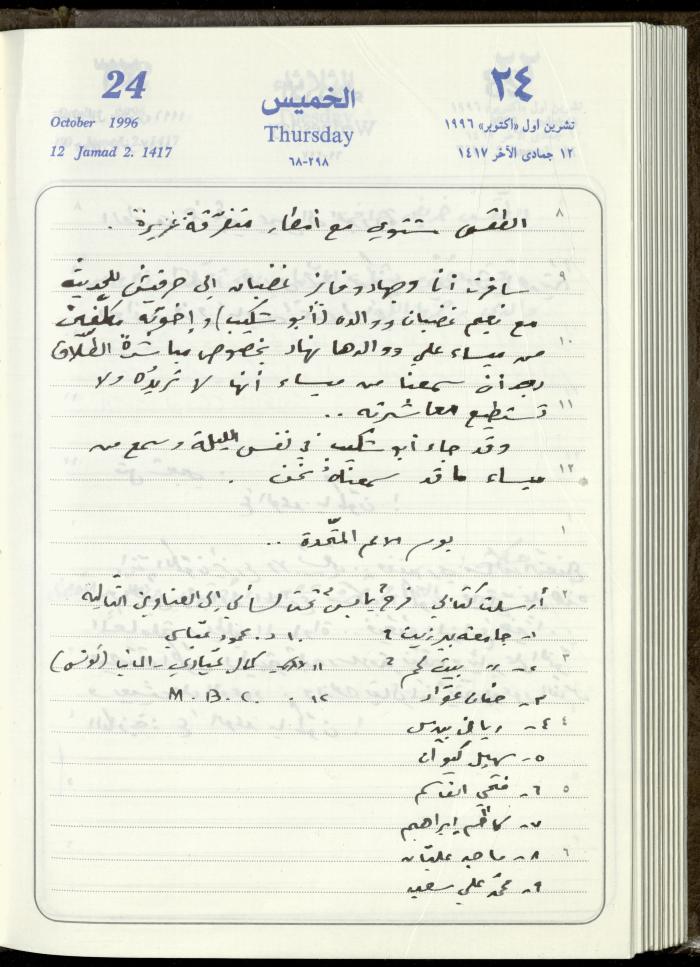 24
October 1996
12 Jamad 2. 1417
الخميس
Thursday
٦٨-٢٩٨
٢٤
تشرين اول «اكتوبر» ١٩٩٦
١٢ جمادى الآخر ١٤١٧
٨ الطقس شتوي مع أمطار متفرّقة غزيرة .
٩ سافرت أنا وجهاد وفايز غضبان إلى حرفيش للحديث
مع نعيم غضبان ووالده (أبو شكيب) وإخوته مكلّفين
١٠ من ميساء علي ووالدها نهاد بخصوص مباشرة الطّلاق
بعد أن سمعنا من ميساء أنها لا تريده ولا
١١ تستطيع معاشرته ..
وقد جاء أبو شكيب في نفس الليلة وسمع من
١٢ ميساء ما قد سمعناه نحن .
١ يوم الامم المتّحدة ..
٢ أرسلت كتابي فرح يابس تحت لساني إلى العناوين التّالية
١- جامعة بيرزيت ٢ ١٠ د. محمود عبّاسي
٣ ٢- " بيت لحم ٢ ١١ كمال عيّادي - المانيا (تونس)
٣- حنان عوّاد ١٢ . M. B. C.
٤ ٤- رياض بيدس
٥- سهيل كيوان
٥ ٦- فتحي القاسم
٧- كاظم ابراهيم
٦ ٨- ماجد عليّان
٩- محمّد علي سعيد